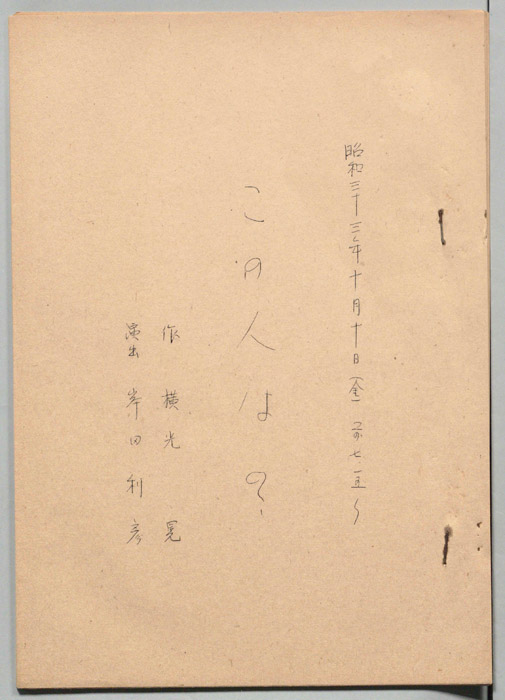 昭和三十三年十月十日(金)前七・一五〜
この人は?
作 横光 晃
演出 岸田利彦